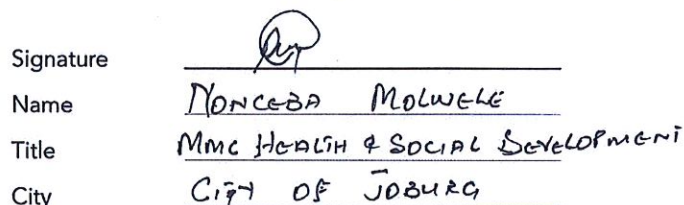 Signature
Name NONCEBA MOLWELE
Title MMC HEALTH & SOCIAL DEVELOPMENT
City CITY OF JOBURG